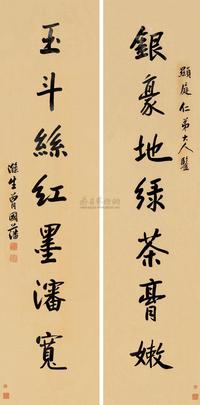 顯庭仁弟大人鑒
銀豪地绿茶膏嫩
玉斗絲红墨瀋寬
滌生曾國藩